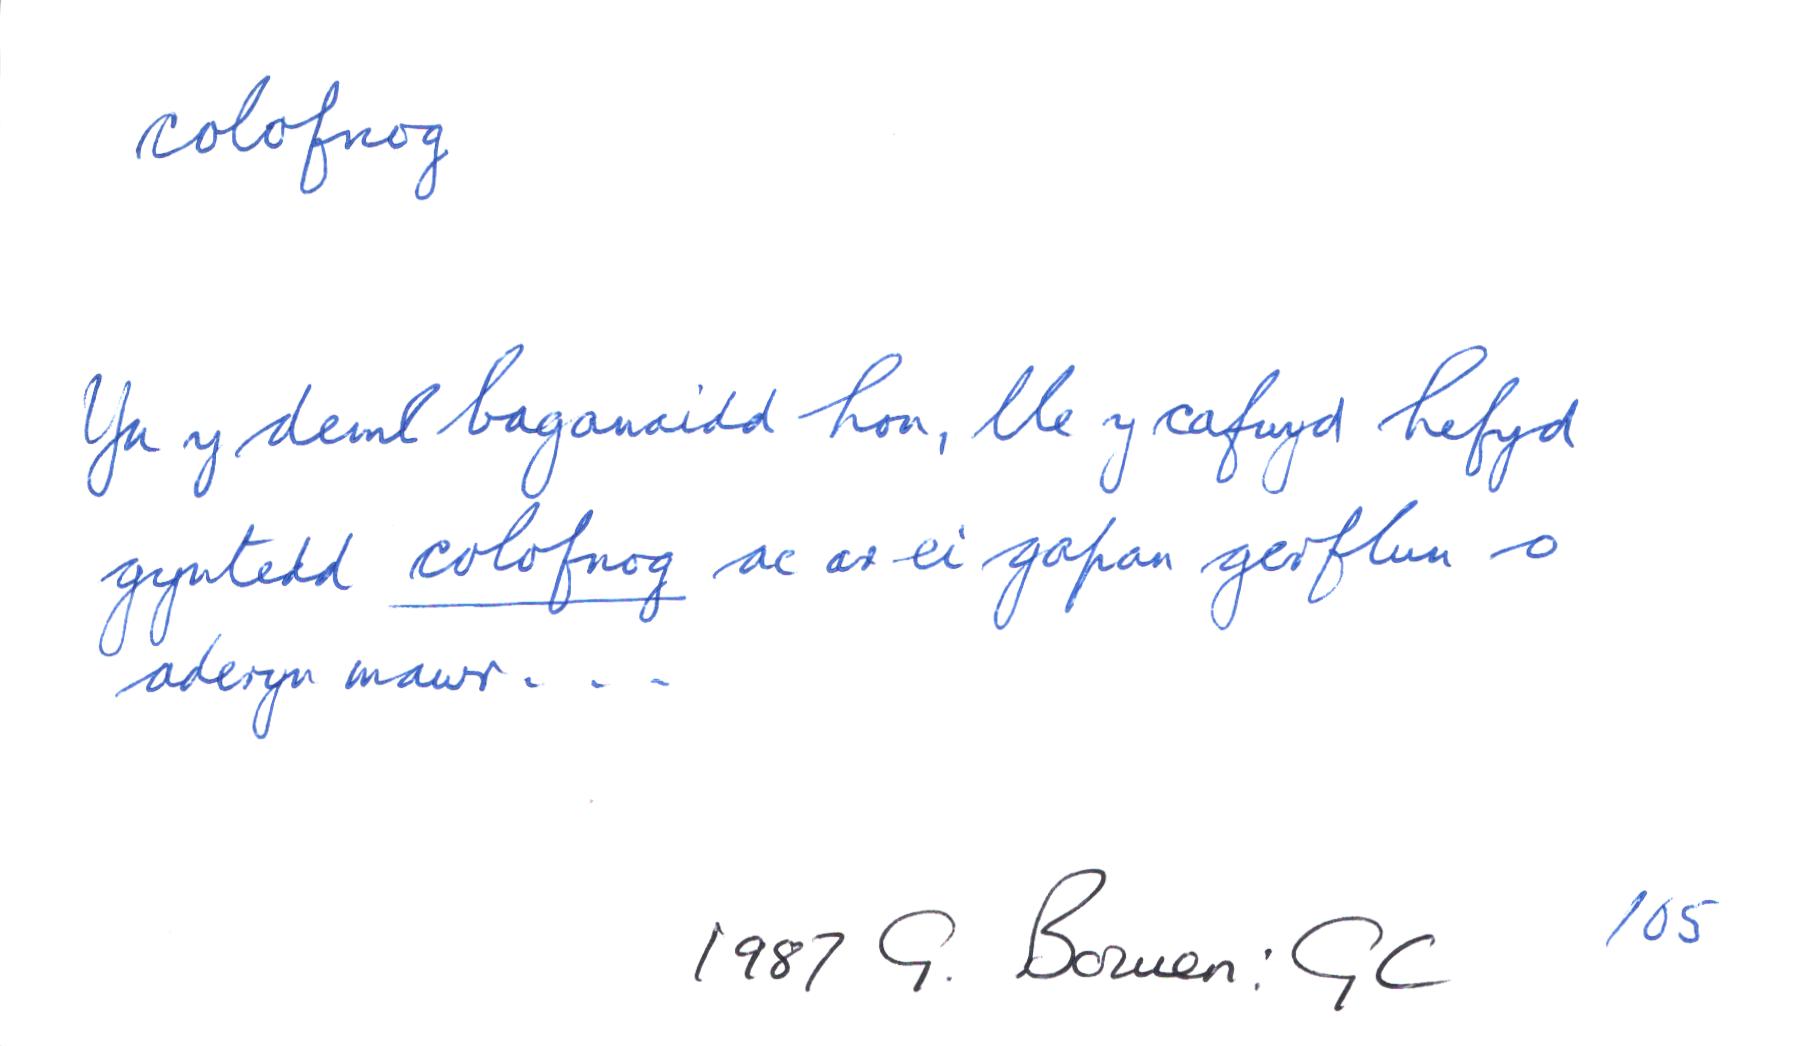 colofnog
Yn y deml baganaidd hon, lle y cafwyd hefyd
gyntedd colofnog ac ar ei gapan gerflun o
aderyn mawr . . .
1987 G. Bowen: GC 105